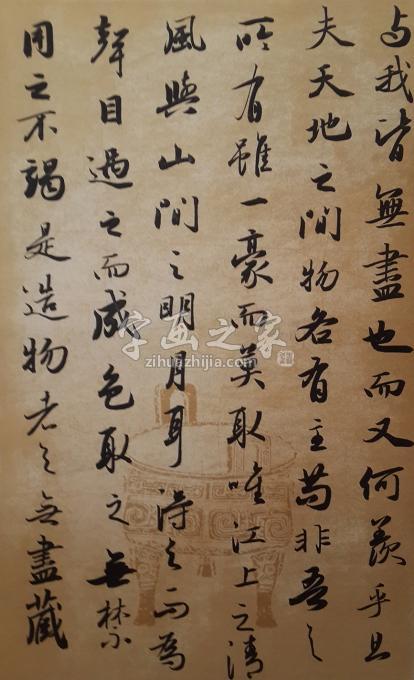 与我皆無盡也而又何羨乎且
夫天地之間物各有主苟非吾之
所有雖一豪而莫取唯江上之清
風與山間之明月耳得之而為
聲目遇之而成色取之無禁
用之不竭是造物者之無盡藏
字画之家
zihuazhijia.com